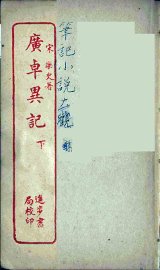 筆記小說大觀
宋 樂史著
廣卓異記 下
進步書
局校印